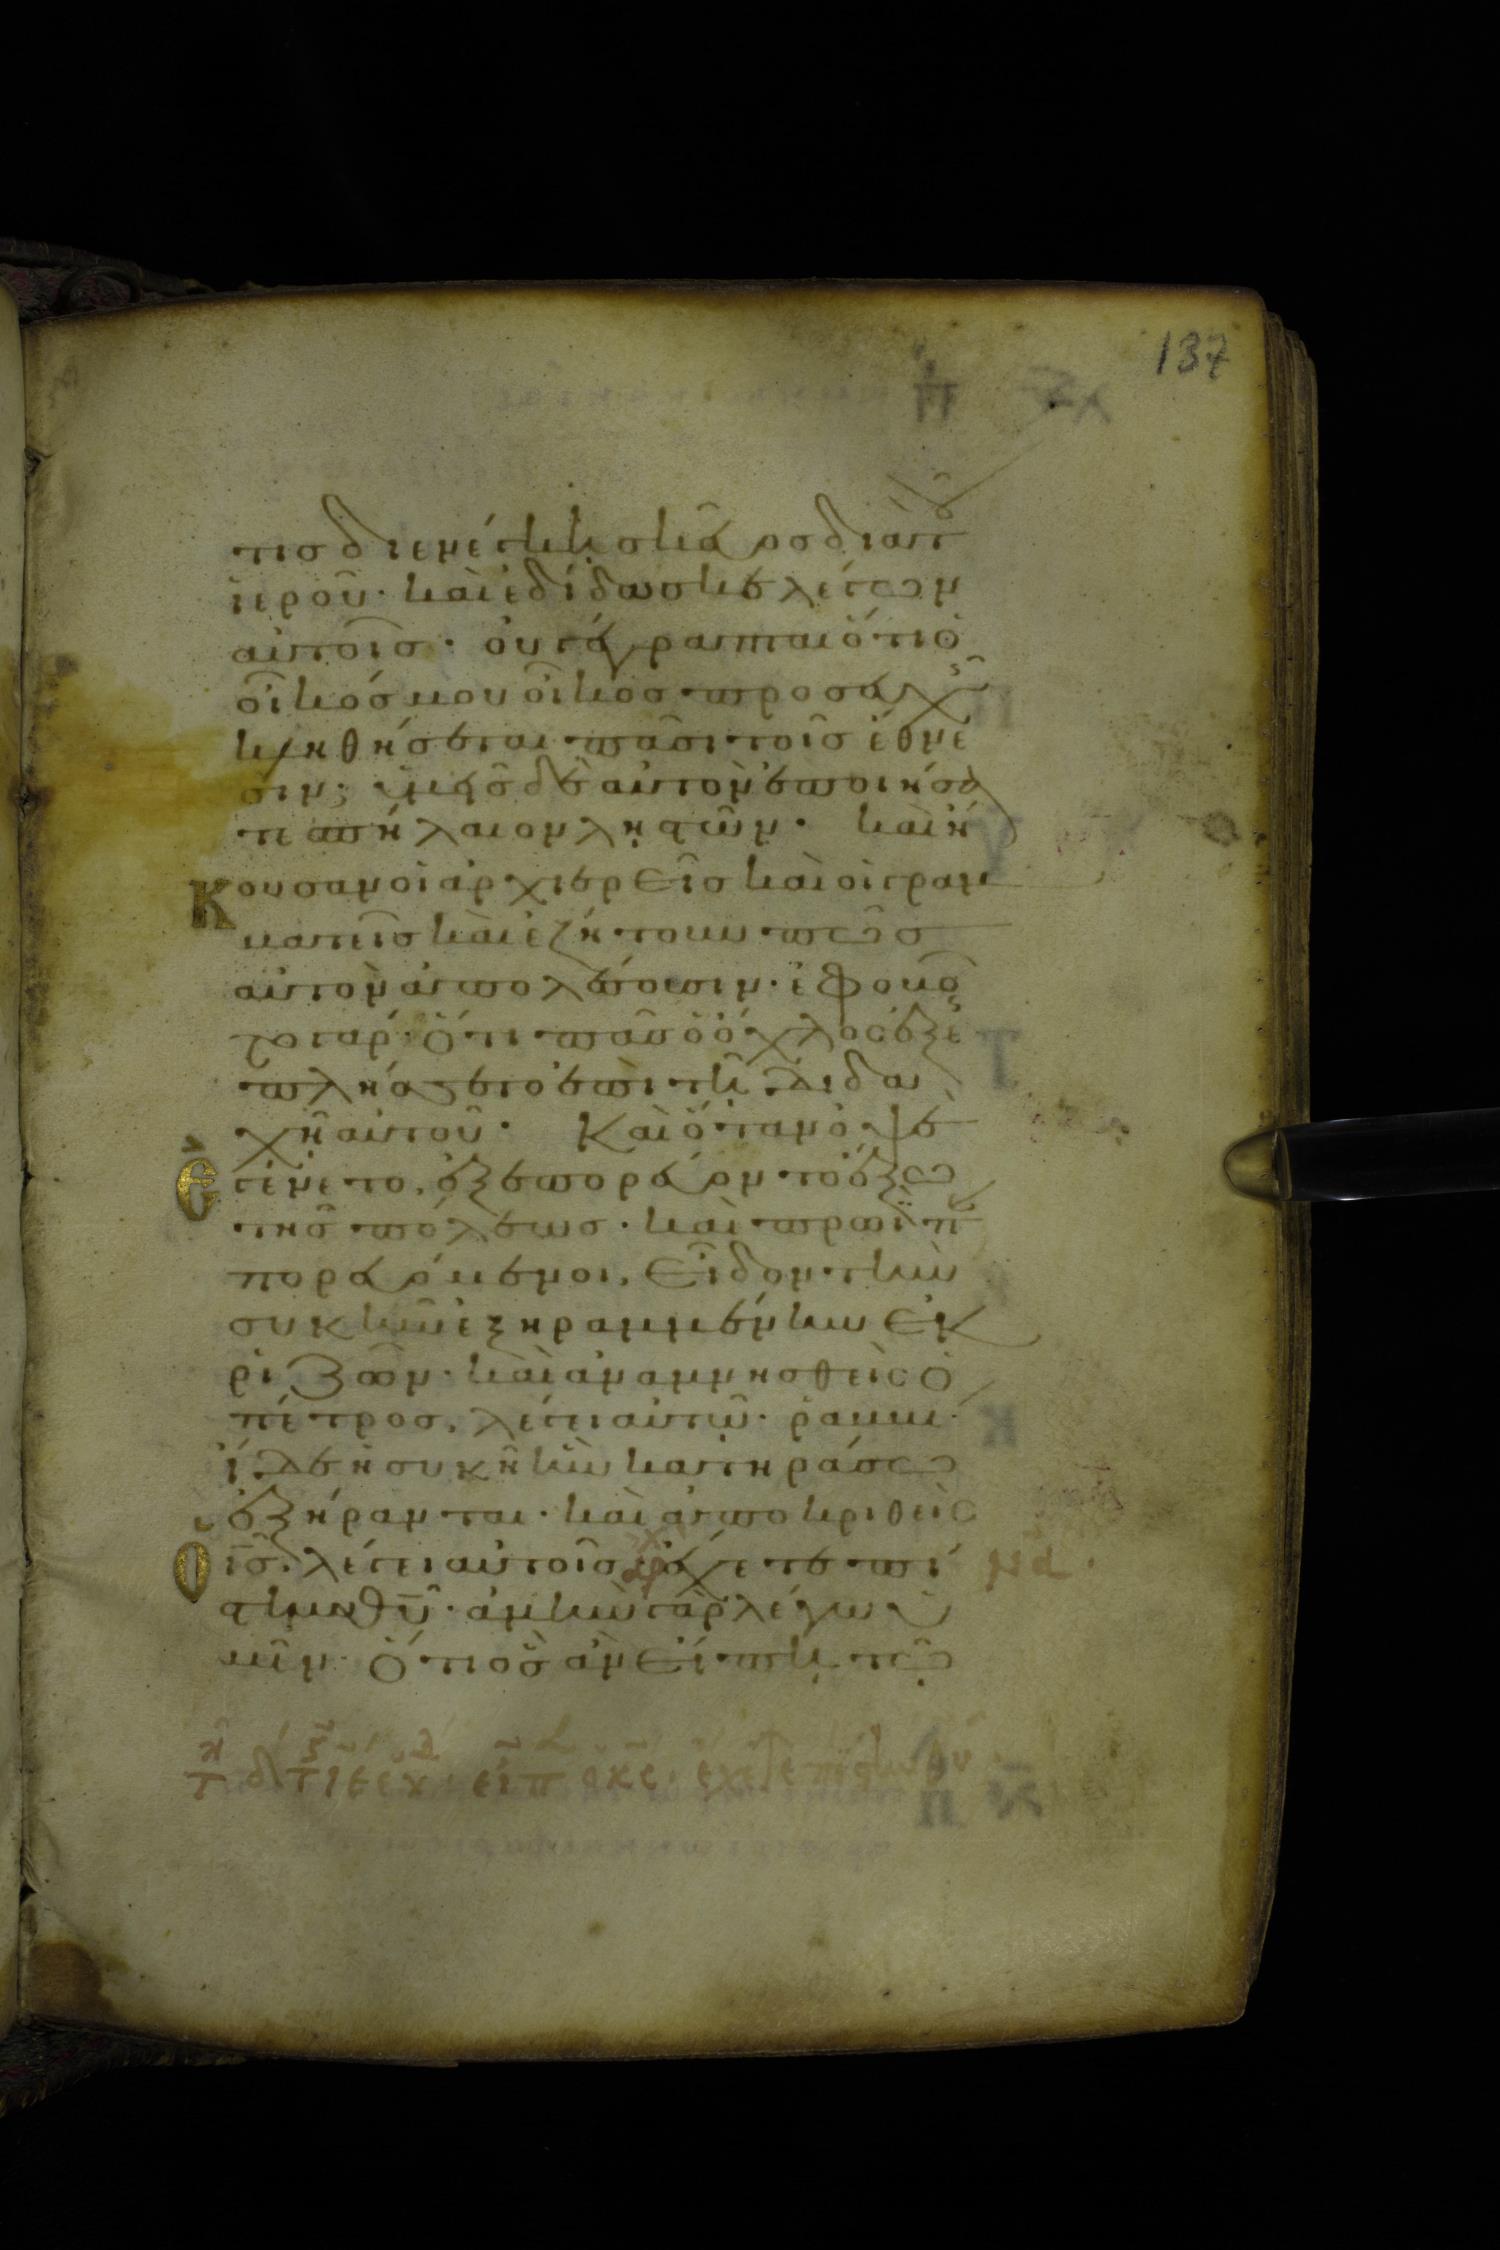 137
τις διενέγκη σκεῦος διὰ τοῦ
ἱεροῦ· καὶ ἐδίδασκε λέγων
αὐτοῖς· οὐ γέγραπται ὅτι ὁ
οἶκός μου οἶκος προσευχῆς
κληθήσεται πᾶσι τοῖς ἔθνε
σιν; ὑμεῖς δὲ αὐτὸν ἐποιήσα
τε σπήλαιον ληστῶν· καὶ ἤ
Κουσαν οἱ ἀρχιερεῖς καὶ οἱ γραμ
ματεῖς καὶ ἐζήτουν πῶς
αὐτὸν ἀπολέσωσιν· ἐφοβοῦ
το γάρ· ὅτι πᾶς ὁ ὄχλος ἐξε
πλήσσετο ἐπὶ τῆ διδα
χῆ αὐτοῦ· Καὶ ὅταν ὀψὲ
Ἐγένετο, ἐξεπορεύετο ἔξω
τῆς πόλεως· καὶ πρωῒ πα
πορευόμενοι, εἶδον τὴν
συκῆν ἐξηραμμένην ἐκ
ριζῶν· καὶ ἀναμνησθεὶς ὁ
πέτρος, λέγει αὐτῷ· ῥαββι·
ἴδε ἡ συκῆ ἣν κατηράσω
ἐξήρανται· καὶ ἀποκριθεὶς
Ὁ ις, λέγει αὐτοῖς ἔχετε πί
στιν θυ· ἀμὴν γὰρ λέγω ὑ
μῖν· ὅτι ὃς ἂν εἴπη τῷ
εἶπ ὁ κς· ἔχετε πίστιν θυ